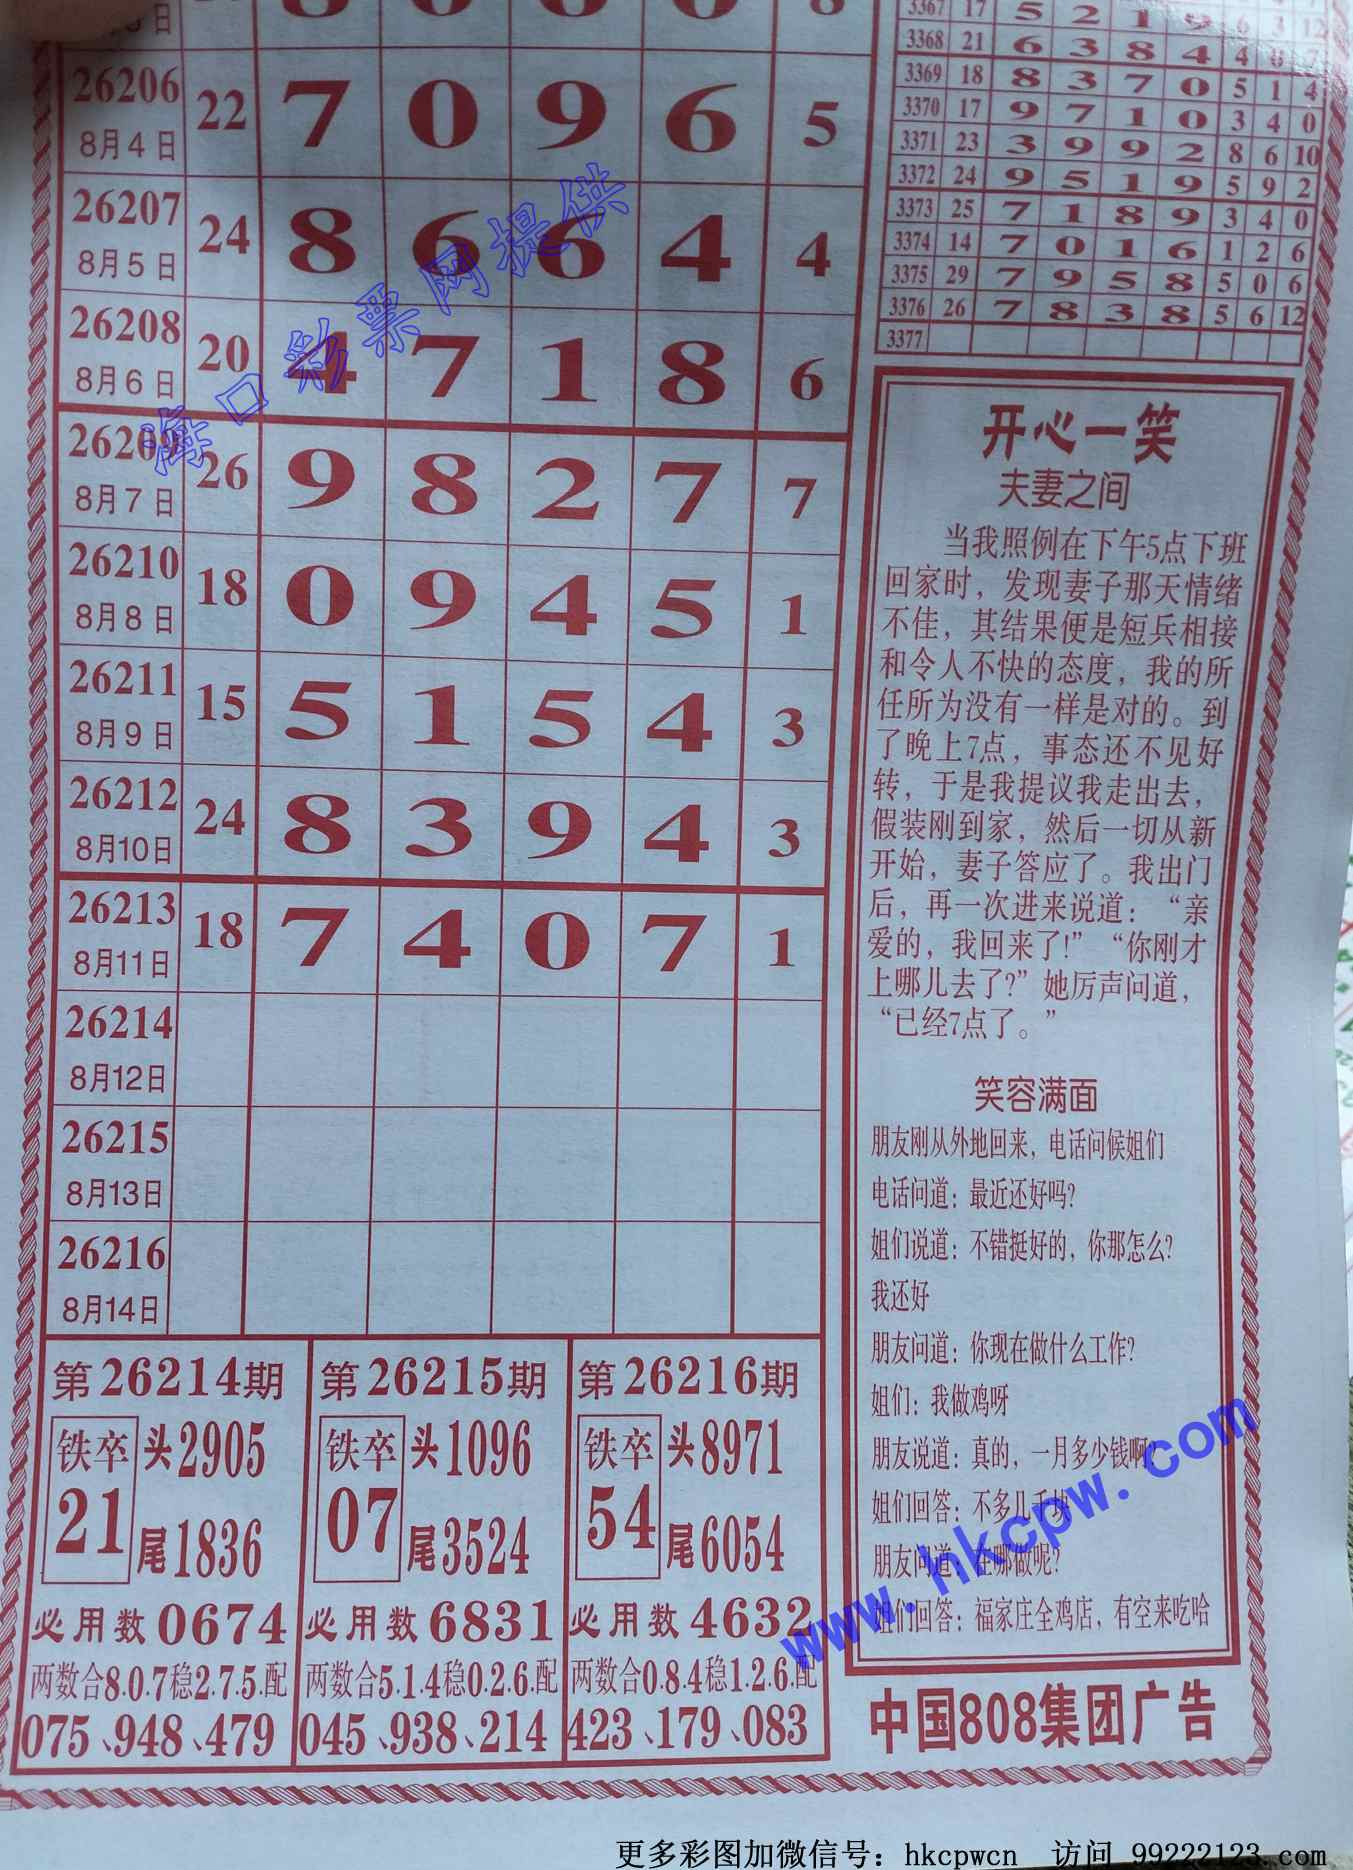 26206 22 7 0 9 6 5
8月4日
26207 24 8 6 6 4 4
8月5日
26208 20 4 7 1 8 6
8月6日
26209 26 9 8 2 7 7
8月7日
26210 18 0 9 4 5 1
8月8日
26211 15 5 1 5 4 3
8月9日
26212 24 8 3 9 4 3
8月10日
26213 18 7 4 0 7 1
8月11日
26214
8月12日
26215
8月13日
26216
8月14日
第26214期
铁卒 头2905
21 尾1836
必用数0674
两数合8.0.7稳2.7.5.配
075、948、479
第26215期
铁卒 头1096
07 尾3524
必用数6831
两数合5.1.4稳0.2.6.配
045、938、214
第26216期
铁卒 头8971
54 尾6054
必用数4632
两数合0.8.4稳1.2.6.配
423、179、083
3367 17 5 2 1 9 6 3 12
3368 21 6 3 8 4 4 0 7
3369 18 8 3 7 0 5 1 4
3370 17 9 7 1 0 3 4 0
3371 23 3 9 9 2 8 6 10
3372 24 9 5 1 9 5 9 2
3373 25 7 1 8 9 3 4 0
3374 14 7 0 1 6 1 2 6
3375 29 7 9 5 8 5 0 6
3376 26 7 8 3 8 5 6 12
3377
开心一笑
夫妻之间
当我照例在下午5点下班
回家时，发现妻子那天情绪
不佳，其结果便是短兵相接
和令人不快的态度，我的所
任所为没有一样是对的。到
了晚上7点，事态还不见好
转，于是我提议我走出去，
假装刚到家，然后一切从新
开始，妻子答应了。我出门
后，再一次进来说道：“亲
爱的，我回来了!”“你刚才
上哪儿去了?”她厉声问道，
“已经7点了。”
笑容满面
朋友刚从外地回来，电话问候姐们
电话问道：最近还好吗?
姐们说道：不错挺好的，你那怎么?
我还好
朋友问道：你现在做什么工作?
姐们：我做鸡呀
朋友说道：真的，一月多少钱啊?
姐们回答：不多几千块
朋友问道：在哪做呢?
姐们回答：福家庄全鸡店，有空来吃哈
中国808集团广告
海口彩票网提供
www.hkcpw.com
更多彩图加微信号：hkcpwcn 访问 99222123.com